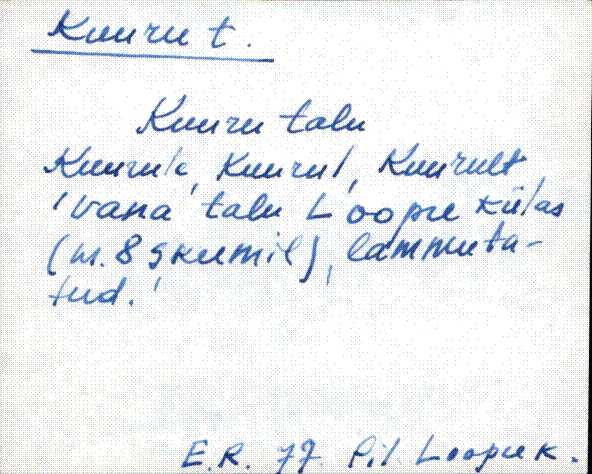 Kuuru t.
Kuuru talu
Kuurule, Kuurul, Kuurult,
'vana talu Loopre külas
lammuta-
tud.'
E.R. 77 Pil. Loopre k.